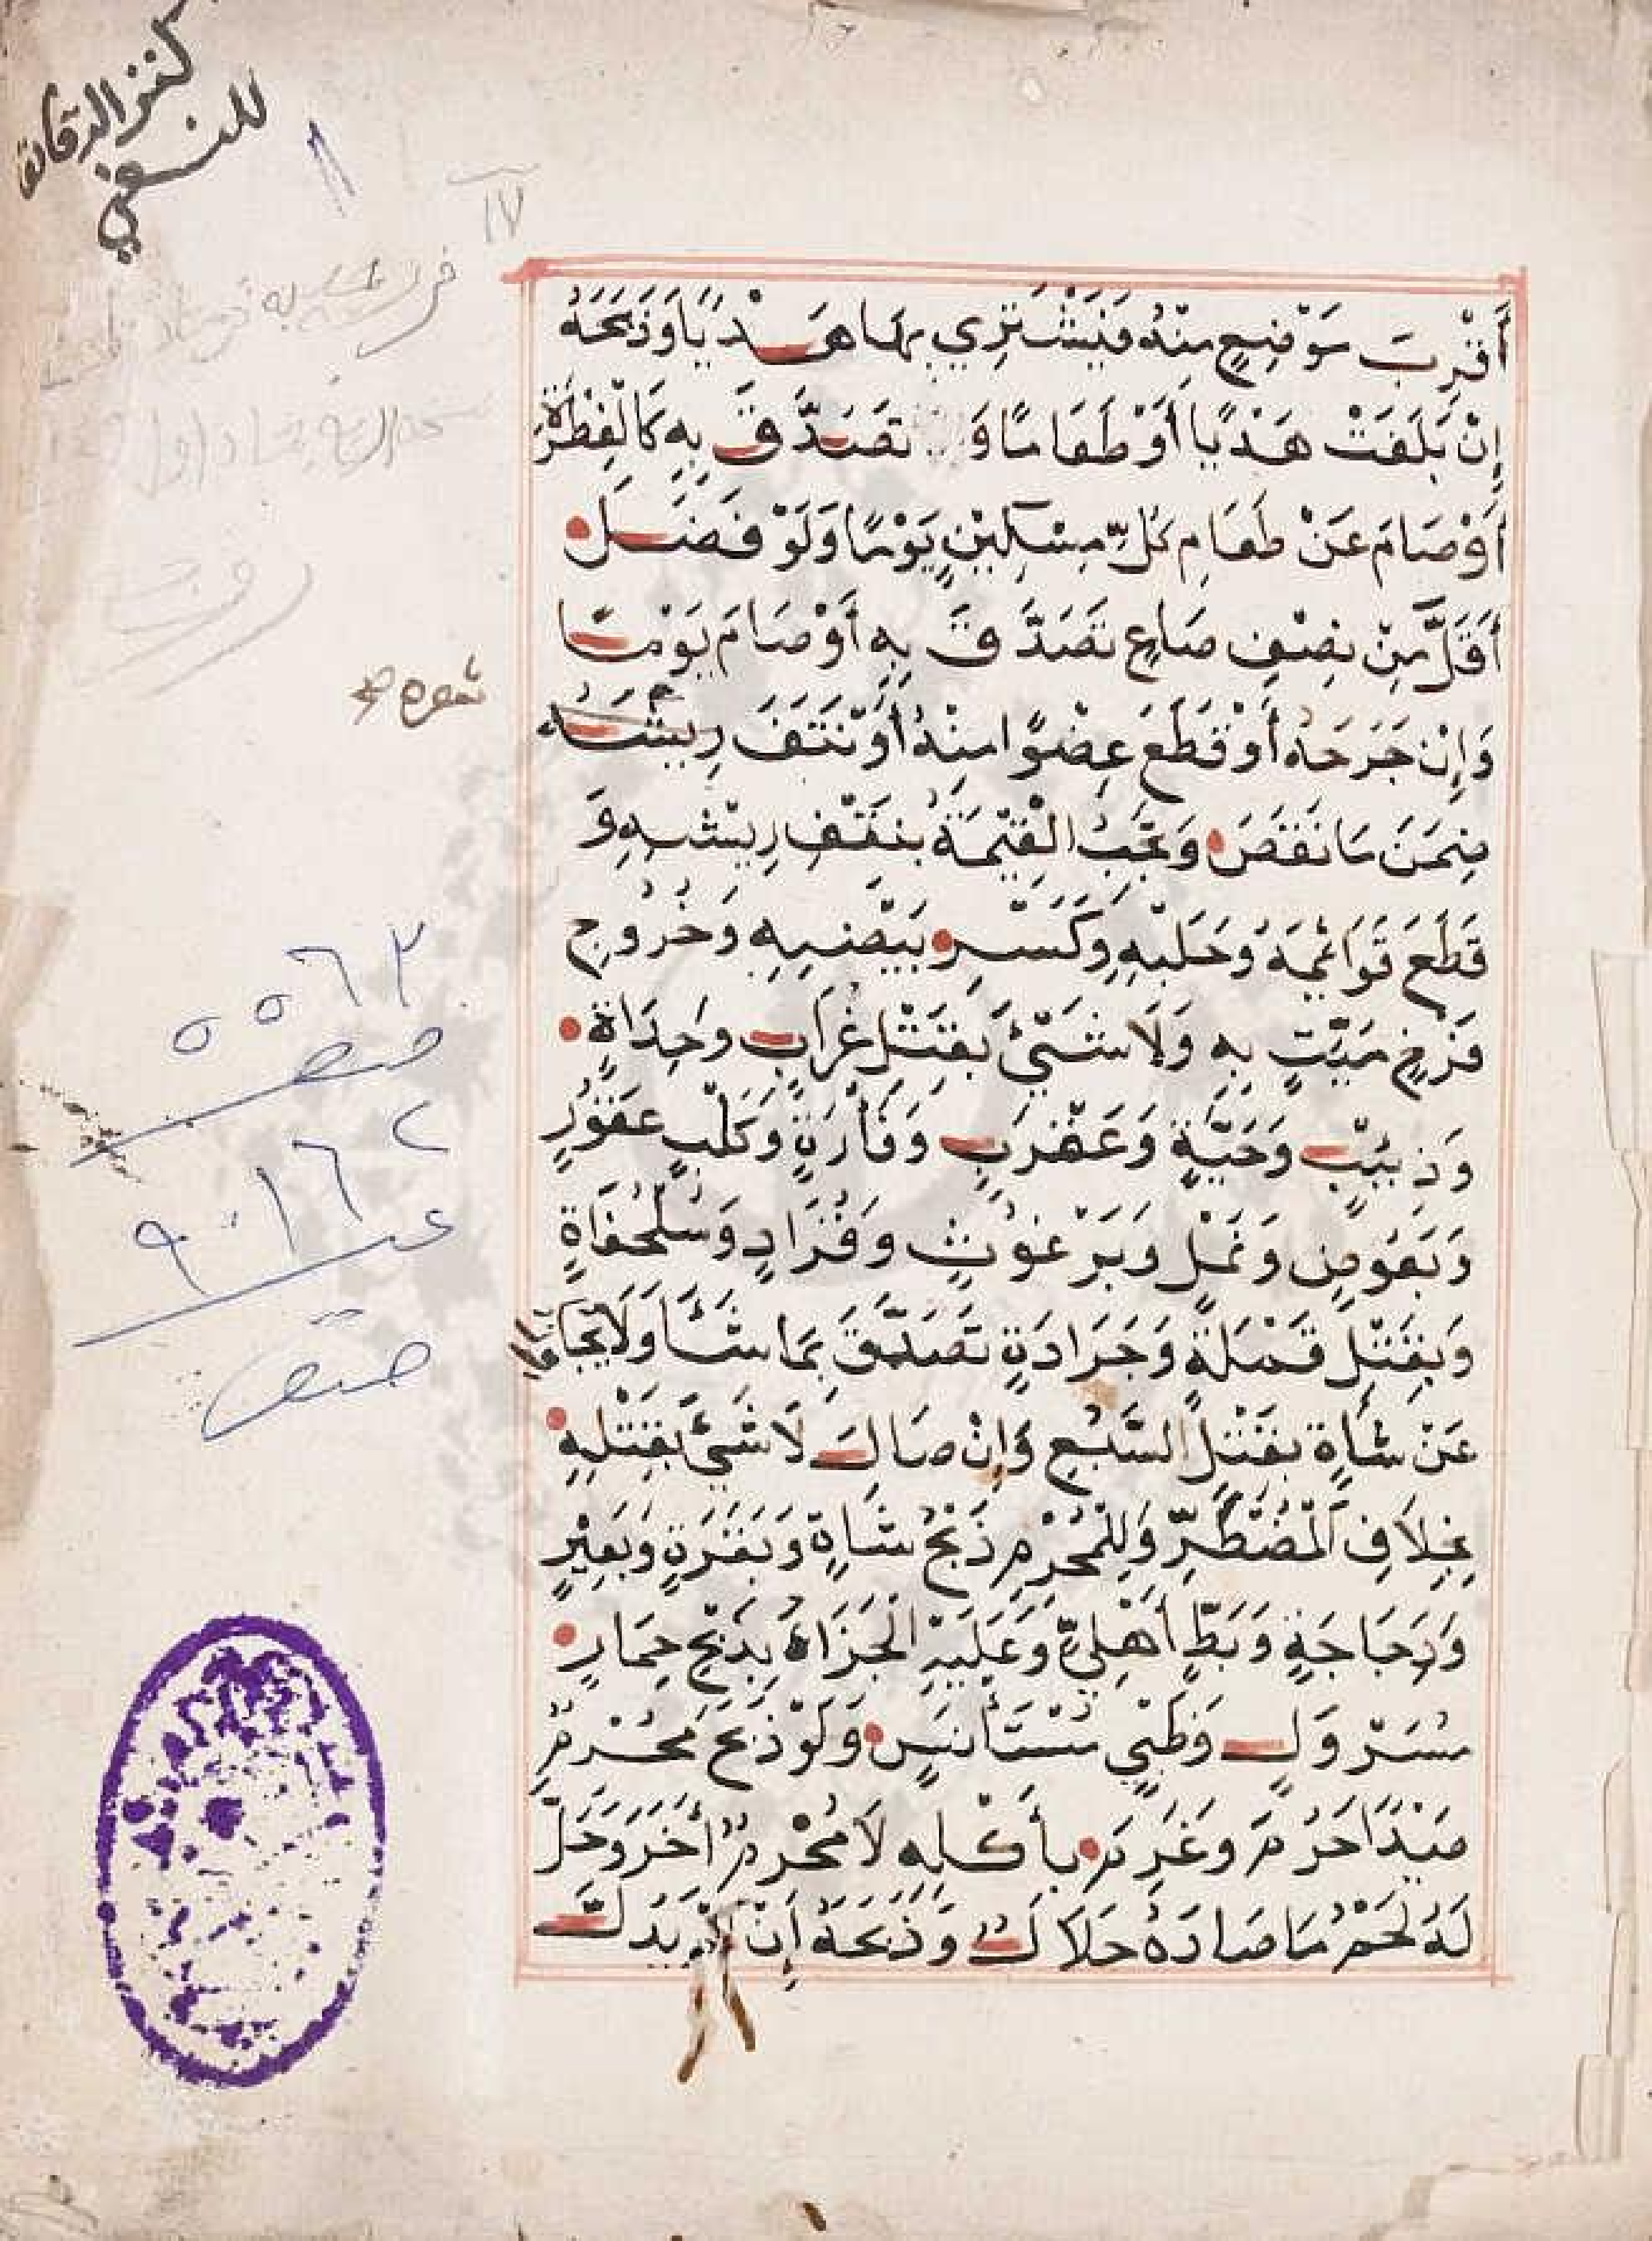 كنز الدقائق
للنسفي
١٧
أَقْرِبَ مَوْضِعٍ مِنْهُ فَيَشْتَرِي بِهَا هَدْيًا وَذَبَحَهُ
إِنْ بَلَغَتْ هَدْيًا أَوْ طَعَامًا وَ تَصَدَّقَ بِهِ كَالْفِطْرَةِ
أَوْ صَامَ عَنْ طَعَامِ كُلِّ مِسْكِيْنٍ يَوْمًا وَلَوْ فَضَلَ
أَقَلَّ مِنْ نِصْفِ صَاعٍ تَصَدَّقَ بِهِ أَوْ صَامَ يَوْمًا
شعره صح
وَإِنْ جَرَحَهُ أَوْ قَطَعَ عِضْوًا مِنْهُ أَوْ نَتَفَ رِيْشَهُ
ضِمَنَ مَا نَقَصَ وَتَجِبُ الْقِيْمَةُ بِنَتْفِ رِيْشِهِ وَ
قَطَعَ قَوَائِمَهُ وَحَلْبِهِ وَكَسْرِ بَيْضِهِ وَخُرُوجِ
فَرْخٍ مَيِّتٍ بِهِ وَلَا شَيْئَ بِقَتْلِ غُرَابٍ وَحِدَاةٍ
وَذِيبٍ وَحَيَّةٍ وَعَقْرَبٍ وَفَأْرَةٍ وَكَلْبٍ عَقُوْرٍ
وَبَعُوضٍ وَنَمْلٍ وَبَرْغُوْثٍ وَقُرَادٍ وَسُلْحُفَاةٍ
وَبِقَتْلِ قَمْلَةٍ وَجَرَادَةٍ تَصَدَّقَ بِمَا شَاَ وَلَا يُجَاوِزُ
عَنْ شَاةٍ بِقَتْلِ السَّبُعِ وَإِنْ صَالَ لَا شَيْئَ بِقَتْلِهِ
بِخِلَافِ الْمُضْطَرِّ وَلِلْمُحْرِمِ ذَبْحُ شَاةٍ وَبَقَرَةٍ وَبَعِيْرٍ
وَدَجَاجَةٍ وَبَطٍّ أَهْلِيٍّ وَعَلَيْهِ الْجَزَاءُ بِذَبْحِ حِمَارٍ
مُسَرْوَلٍ وَظَبْيٍ مُسْتَأْنَسٍ وَلَوْ ذَبَحَ مُحْرِمٌ
صَيْدًا حَرُمَ وَغَرِمَ بِأَكْلِهِ لَا مُحْرِمٌ أَخَرَ وَحَلَّ
لَهُ لَحْمُ مَا صَادَهُ حَلَالٌ وَذَبَحَهُ إِنْ لَمْ يَدُلَّ
٥٥٦٣
٩٠١٦٢